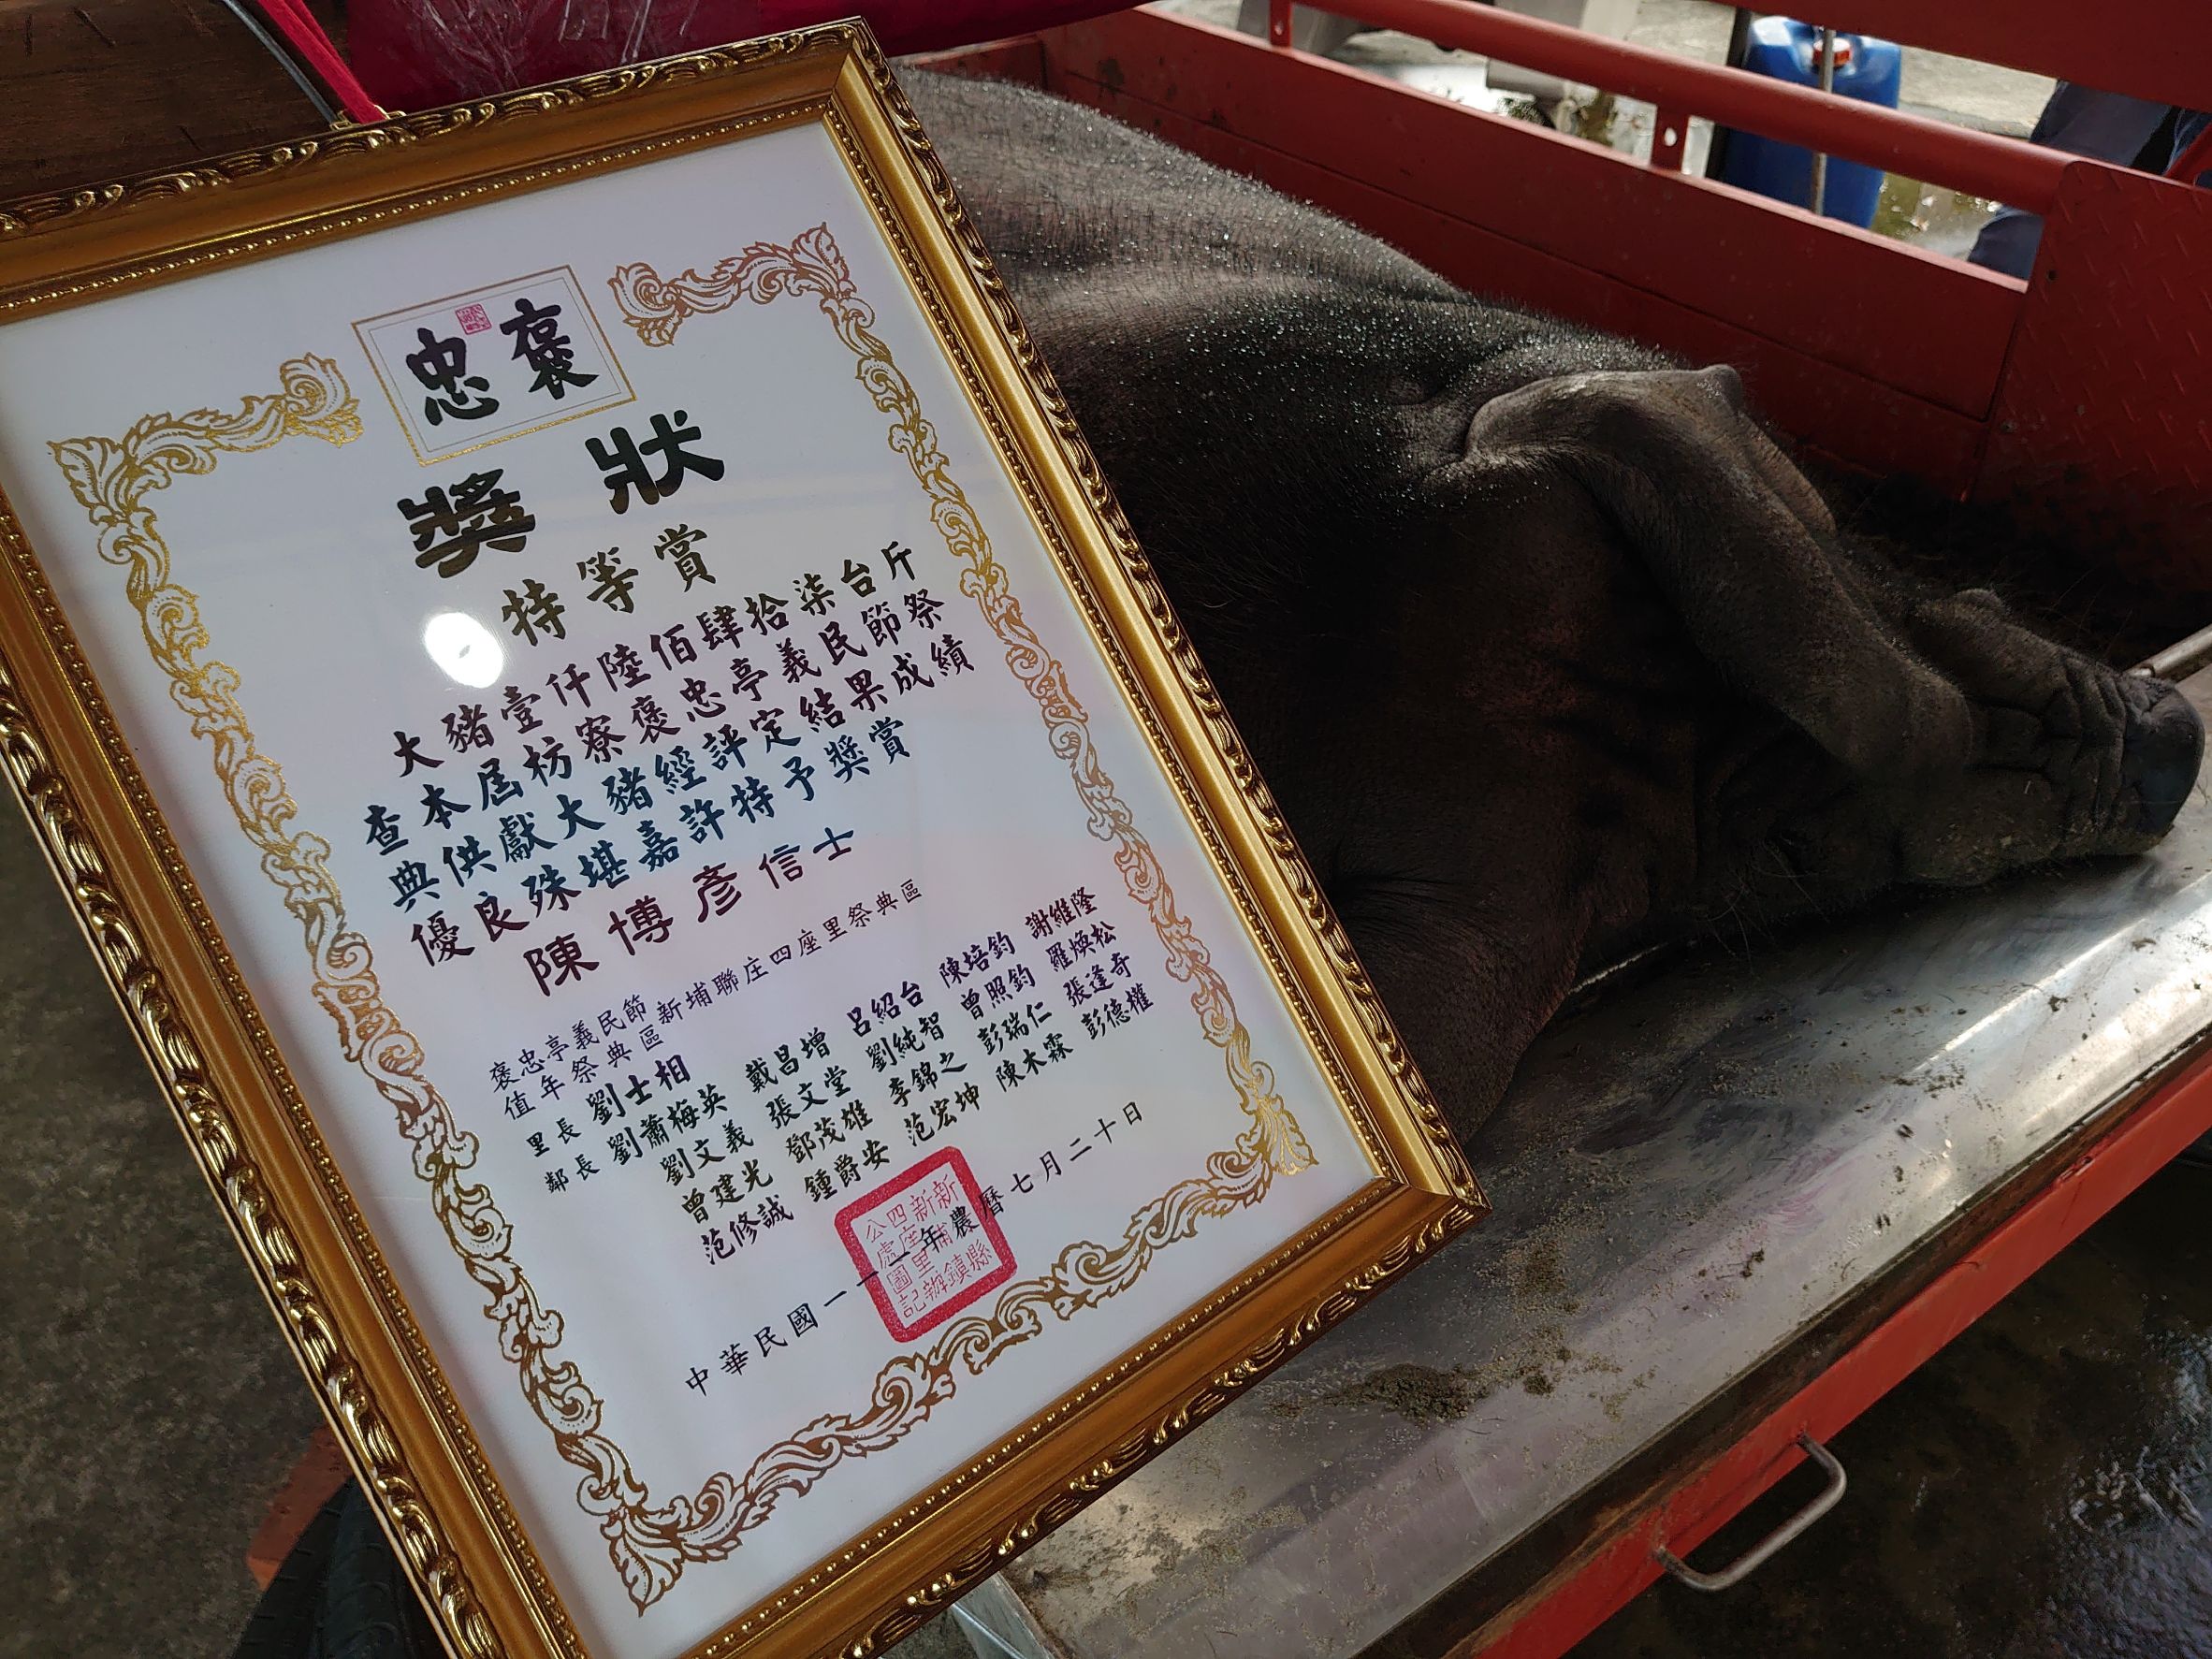 褒忠
獎狀
特等賞
大豬壹仟陸佰肆拾柒台斤
查本屆枋寮褒忠亭義民節祭
典供獻大豬經評定結果成績
優良殊堪嘉許特予獎賞
陳博彥信士
褒忠亭義民節
值年祭典區新埔聯庄四座里祭典區
里長 劉士相 戴昌增 呂紹台 陳培鈞 謝維隆
鄰長 劉蕭梅英 張文堂 劉純智 曾照鈞 羅煥松
劉文義 鄧茂雄 李錦之 彭瑞仁 張逢奇
曾建光 鍾爵安 范宏坤 陳木霖 彭德權
范修誠
中華民國一一二年農曆七月二十日
新埔鎮
四座里辦
公處圖記